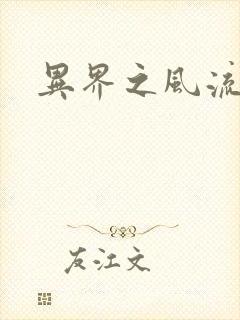 異界之風流
友江文